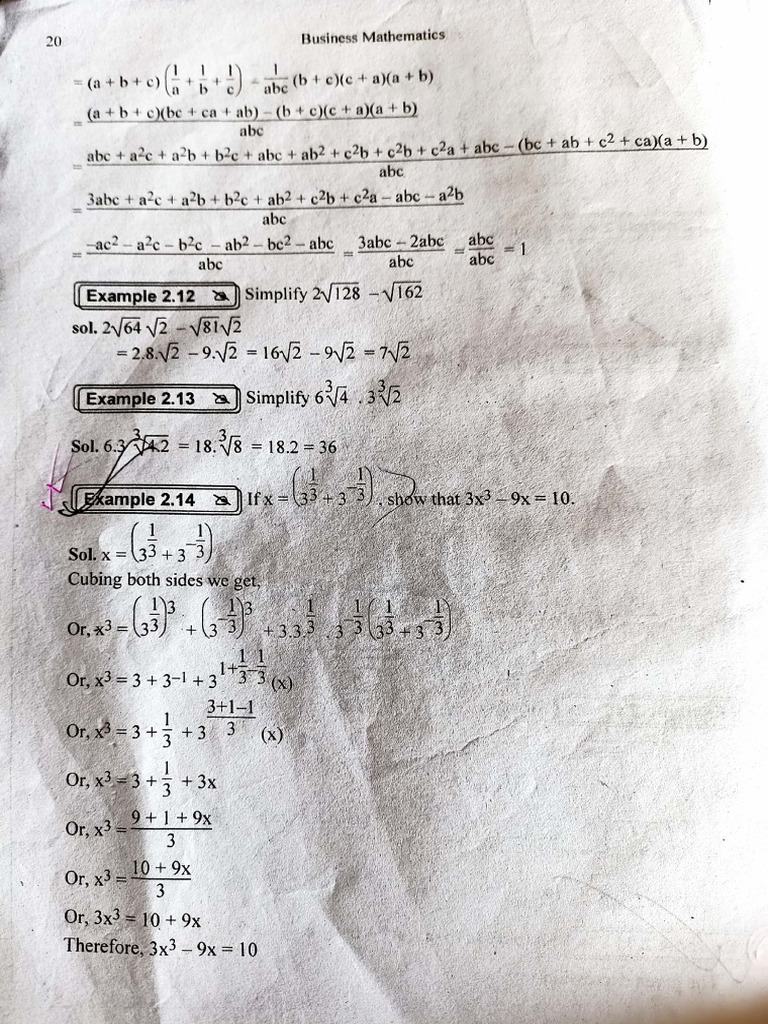 20
Business Mathematics
= (a + b + c) (1/a + 1/b + 1/c) – 1/abc (b + c)(c + a)(a + b)
= (a + b + c)(bc + ca + ab) – (b + c)(c + a)(a + b) / abc
= abc + a²c + a²b + b²c + abc + ab² + c²b + c²b + c²a + abc – (bc + ab + c² + ca)(a + b) / abc
= 3abc + a²c + a²b + b²c + ab² + c²b + c²a – abc – a²b / abc
= –ac² – a²c – b²c – ab² – bc² – abc / abc = 3abc – 2abc / abc = abc / abc = 1
Example 2.12 Simplify 2√128 – √162
sol. 2√64 √2 – √81√2
= 2.8.√2 – 9.√2 = 16√2 – 9√2 = 7√2
Example 2.13 Simplify 6∛4 . 3∛2
Sol. 6.3 ∛4.2 = 18.∛8 = 18.2 = 36
Example 2.14 If x = (3^(1/3) + 3^(–1/3)), show that 3x³ – 9x = 10.
Sol. x = (3^(1/3) + 3^(–1/3))
Cubing both sides we get,
Or, x³ = (3^(1/3))³ + (3^(–1/3))³ + 3.3^(1/3) . 3^(–1/3) (3^(1/3) + 3^(–1/3))
Or, x³ = 3 + 3^(–1) + 3^(1+1/3–1/3) (x)
Or, x³ = 3 + 1/3 + 3^((3+1–1)/3) (x)
Or, x³ = 3 + 1/3 + 3x
Or, x³ = 9 + 1 + 9x / 3
Or, x³ = 10 + 9x / 3
Or, 3x³ = 10 + 9x
Therefore, 3x³ – 9x = 10